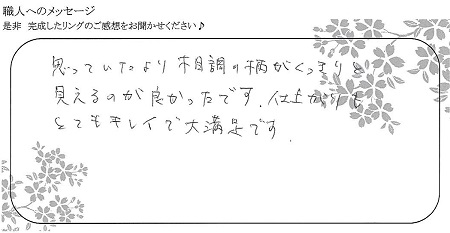 職人へのメッセージ
是非 完成したリングのご感想をお聞かせください♪
思っていたより木目調の柄がくっきりと
見えるのが良かったです。仕上がりも
とてもキレイで大満足です。